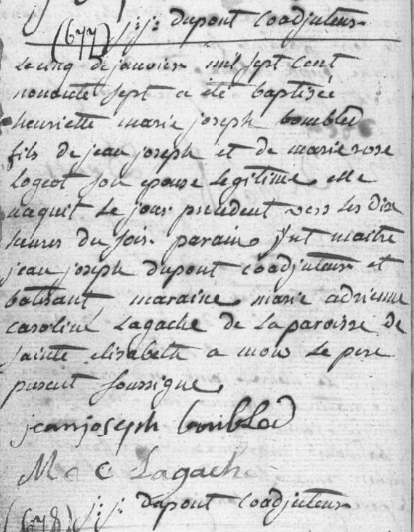 j: j: dupont coadjuteur
(677)
Le cinq de janvier mil sept cent
nonante sept a été baptisée
henriette marie joseph bombled
fils de jean joseph et de marie rose
Logeot son epouse legitime elle
naquit le jour precedent vers les dix
heures du soir parain fut maitre
jean joseph dupont coadjuteur et
batisant maraine marie adrienne
caroline Lagache de la paroisse de
sainte elisabette a mons le pere
present soussigne
jean joseph bombled
M C Lagache
(678) j: j: dupont coadjuteur